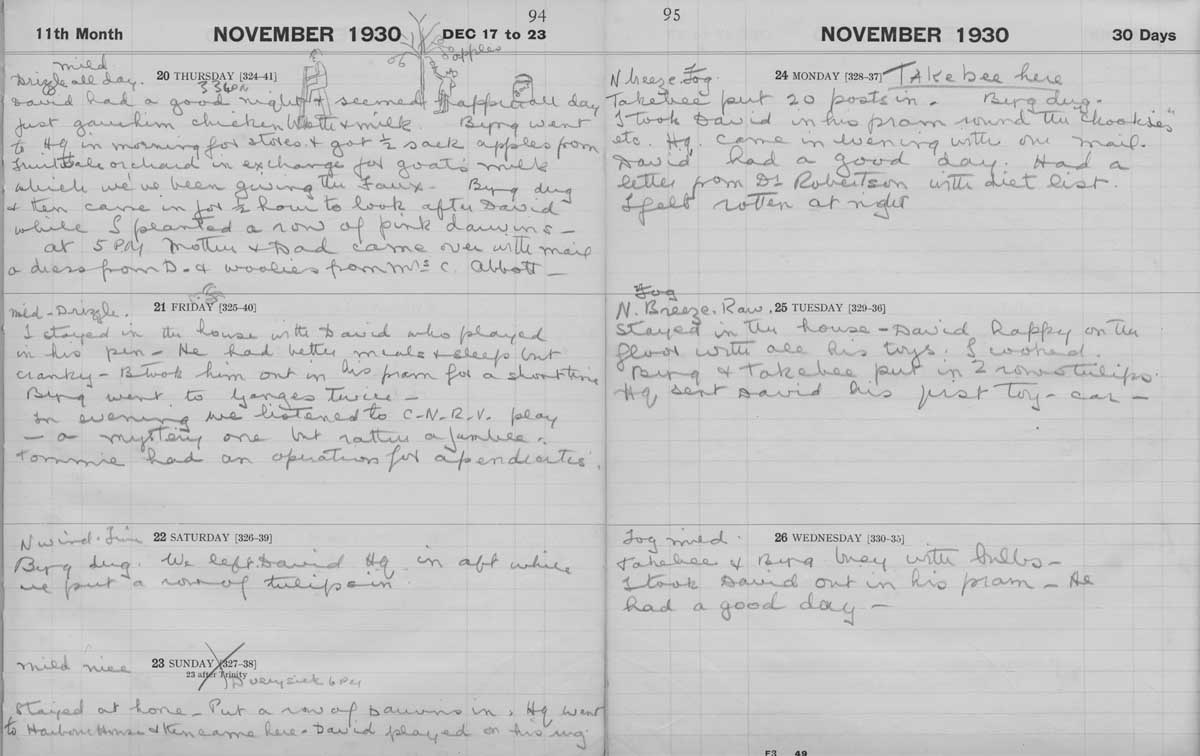 94
11th Month NOVEMBER 1930 DEC 17 to 23
apples
mild
Drizzle all day. 20 THURSDAY [324-41]
David had a good night & seemed happier all day
just gave him chicken broth & milk. Byrg went
to Hq in morning for stores & got ½ sack apples from
Fruitvale orchard in exchange for goat's milk
which we've been giving the Faux - Byrg dug
& then came in for ½ hour to look after David
while I planted a row of pink darwins -
at 5 PM Mother & Dad came over with mail
a dress from D. & woolies from Mrs C. Abbott -
mild - Drizzle. 21 FRIDAY [325-40]
I stayed in the house with David who played
in his pen - He had better meals & sleep but
cranky - B took him out in his pram for a short time
Byrg went to Ganges twice -
In evening we listened to C-N-R-V. play
- a mystery one but rather a jumble.
Tommie had an operation for apendicites.
N wind. Fine 22 SATURDAY [326-39]
Byrg dug. We left David Hq in aft while
we put a row of tulips in
mild nice 23 SUNDAY [327-38]
23 after Trinity
D very sick 6 PM
Stayed at home - Put a row of Darwins in, Hq went
to Harbour House & then came here - David played on his rug
95
NOVEMBER 1930 30 Days
N breeze. Fog. 24 MONDAY [328-37] Takebee here
Takebee put 20 posts in. Byrg dug.
I took David in his pram round the "chookies"
etc. Hq. came in evening with our mail.
David had a good day. Had a
letter from Dr Robertson with diet list.
I felt rotten at night
Fog
N. Breeze. Raw. 25 TUESDAY [329-36]
Stayed in the house - David happy on the
floor with all his toys. I cooked.
Byrg & Takebee put in 2 rows tulips.
Hq sent David his first toy - car -
Fog mild. 26 WEDNESDAY [330-35]
Takebee & Byrg busy with bulbs -
I took David out in his pram - He
had a good day -
F3 49